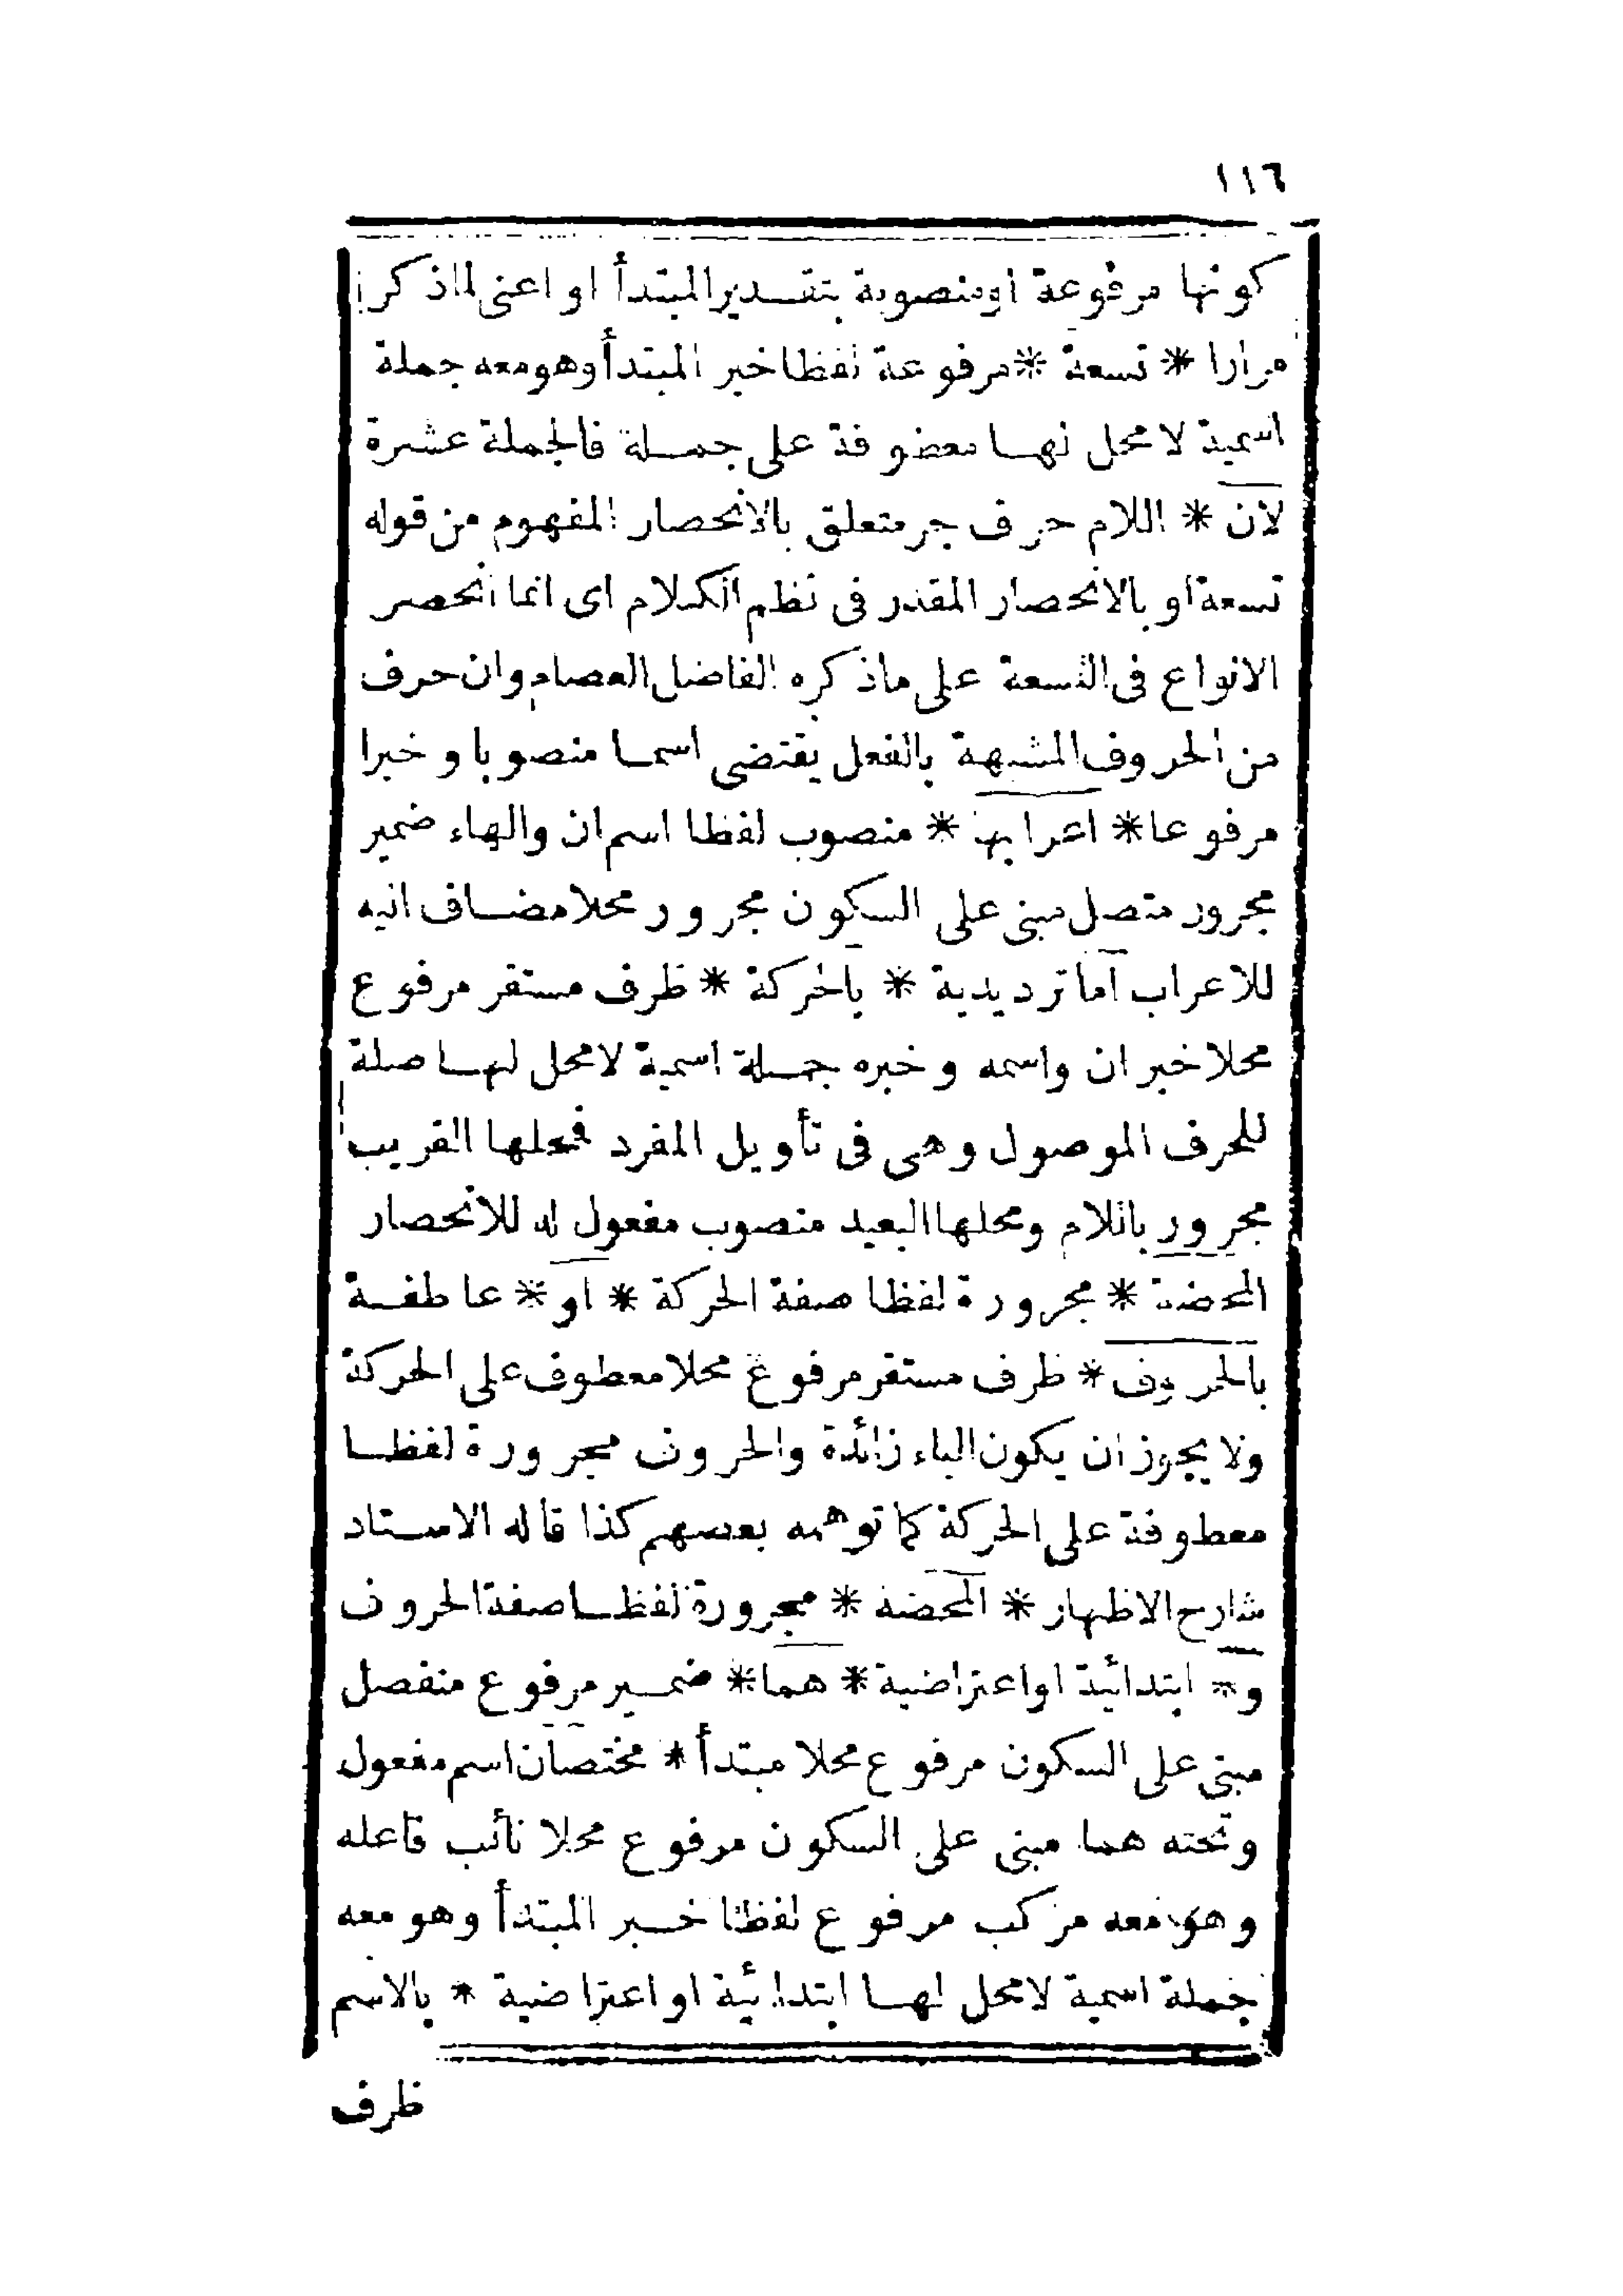 ١١٦
كونها مرفوعة او منصوبة بتقدير المبتدأ او اعنى لما ذكرنا
مرارا * تسعة * مرفوعة لفظا خبر المبتدأ وهو معه جملة
اسمية لا محل لها معطوفة على جملة فالجملة عشرة
لان * اللام حرف جر متعلق بالانحصار المفهوم من قوله
تسعة او بالانحصار المقدر فى نظم الكلام اى انما انحصر
الانواع فى التسعة على ماذكره الفاضل العصام وان حرف
من الحروف المشبهة بالفعل يقتضى اسما منصوبا وخبرا
مرفوعا * اعرابها * منصوب لفظا اسم ان والهاء ضمير
مجرور متصل مبنى على السكون مجرور محلا مضاف اليه
للاعراب اما ترديدية * بالحركة * ظرف مستقر مرفوع
محلا خبر ان واسمه وخبره جملة اسمية لا محل لها صلة
للحرف الموصول وهى فى تأويل المفرد فمحلها القريب
مجرور باللام ومحلها البعيد منصوب مفعول له للانحصار
المحضة * مجرورة لفظا صفة الحركة * او * عاطفة
بالحروف * ظرف مستقر مرفوع محلا معطوف على الحركة
ولا يجوز ان يكون الباء زائدة والحروف مجرورة لفظا
معطوفة على الحركة كما توهمه بعضهم كذا قاله الاستاد
شارح الاظهار * المحضة * مجرورة لفظا صفة الحروف
و * ابتدائية او اعتراضية * هما * ضمير مرفوع منفصل
مبنى على السكون مرفوع محلا مبتدأ * مختصان اسم مفعول
وتحته هما مبنى على السكون مرفوع محلا نائب فاعله
وهو معه مركب مرفوع لفظا خبر المبتدأ وهو معه
جملة اسمية لا محل لها ابتدائية او اعتراضية * بالاسم
ظرف